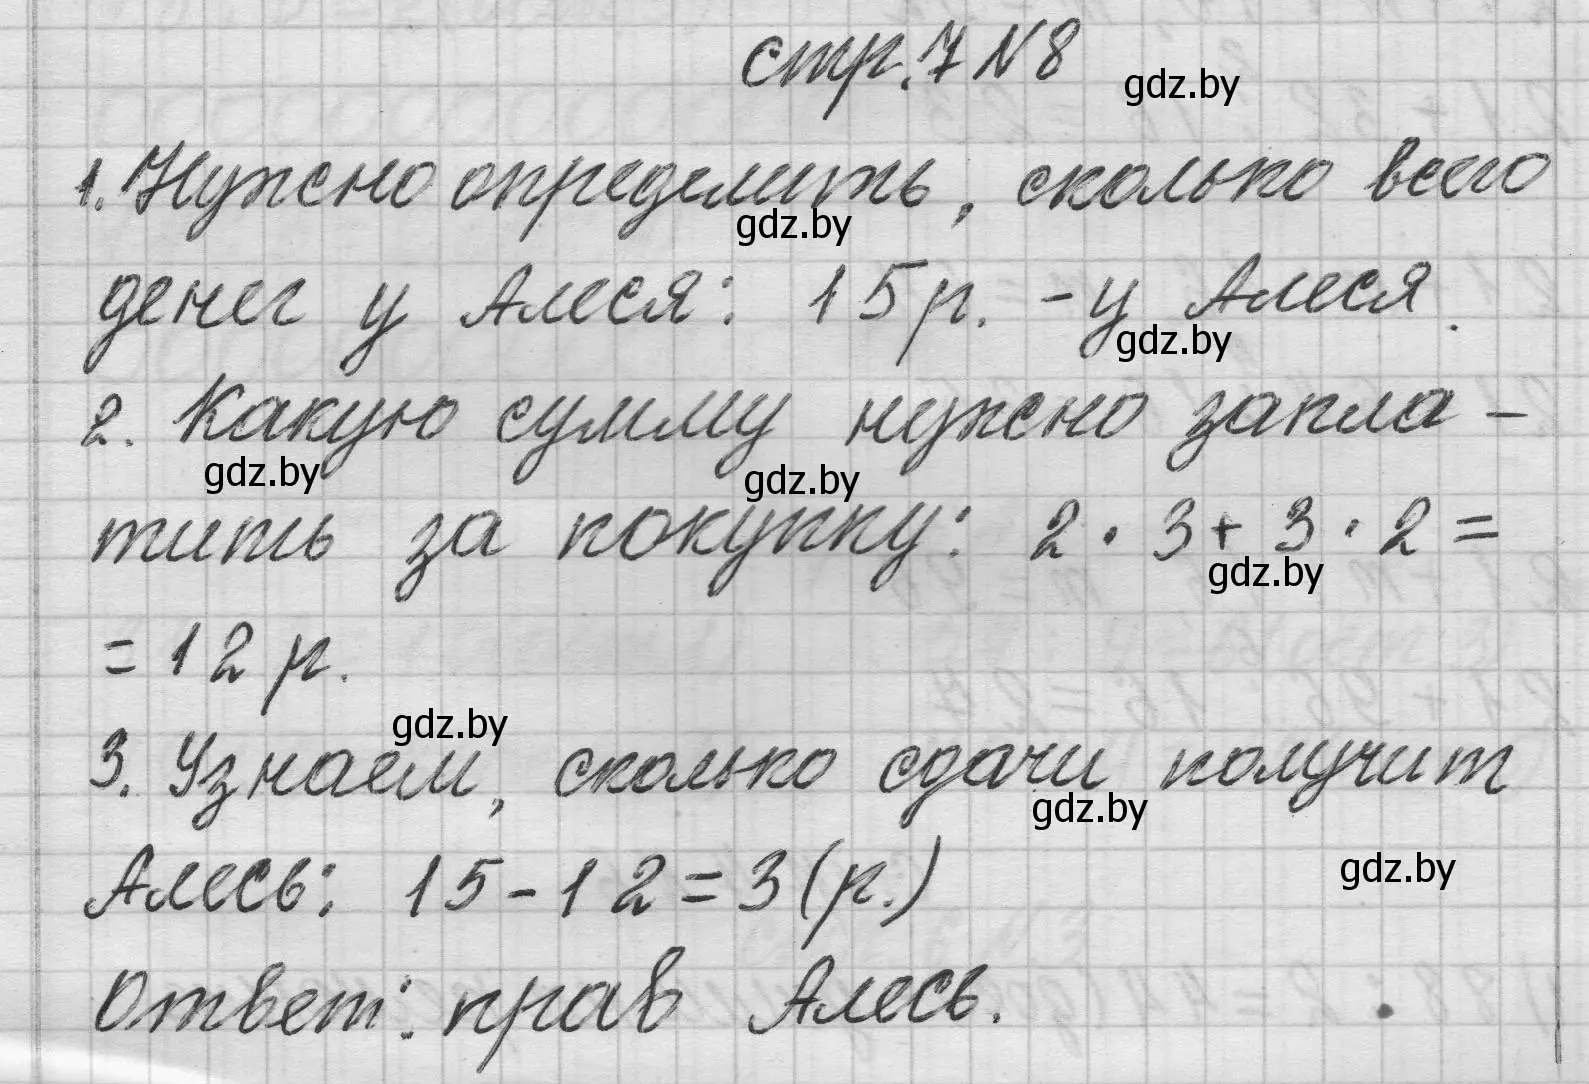 стр. 7 N 8
gdz.by
1. Нужно определить, сколько всего
gdz.by
денег у Алеся: 15 р. - у Алеся.
gdz.by
2. Какую сумму нужно запла -
gdz.by gdz.by
тить за покупку: 2 · 3 + 3 · 2 =
gdz.by
= 12 р.
gdz.by
3. Узнаем, сколько сдачи получит
gdz.by
Алесь: 15 - 12 = 3 (р.)
gdz.by
Ответ: прав Алесь.